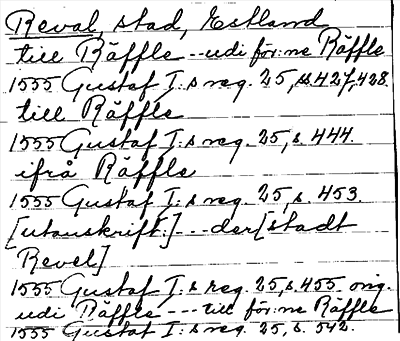 Reval, stad, Estland
till Räffle --- udi för:ne Räffle
1555 Gustaf I:s reg. 25, ss. 427, 428.
till Räffle
1555 Gustaf I:s reg. 25, s. 444.
ifrå Räffle
1555 Gustaf I:s reg. 25, s. 453.
[utanskrift:] --- der [stadt
Revel]
1555 Gustaf I:s reg. 25, s. 455. orig.
udi Räffle --- till för:ne Räffle
1555 Gustaf I:s reg. 25, s. 542.